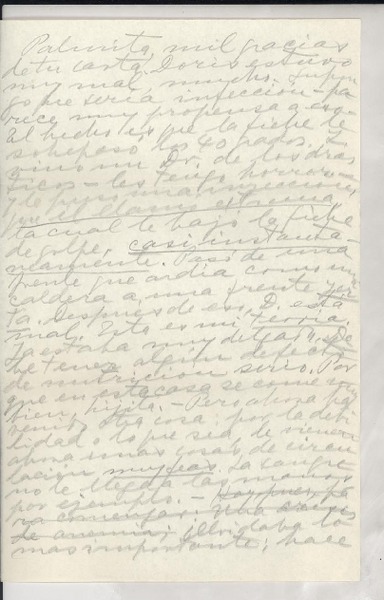 Palmita, mil gracias
de tu carta. Doris estuvo
muy mal, mucho. Supon-
go que sería infección - pa-
rece muy propensa a eso.
El hecho es que la fiebre le
sobrepasó los 40 grados. Y
vino un Dr. de los drás-
ticos - les tengo horror -
y le puso una inyección
que él llamó extrema,
la cual le bajó la fiebre
de golpe, casi instantá-
neamente. Pasó de una
frente que ardía como una
caldera a una frente yer-
ta. Después de eso, D. está
mal. Esto es mi teoría.
Ya estaba muy delgada, de-
be tener algún defecto
de nutrición serio. Por
que en esta casa se come muy
bien, hijita. - Pero ahora pa
venir otra cosa: por la debi-
lidad o lo que sea, le vienen
ahora unas cosas de circu-
lación muy feas. La sangre
no le llega a las manos,
por ejemplo. - Hay que
comenzar una
de anemia; ¡Olvidaba lo
más importante; hace